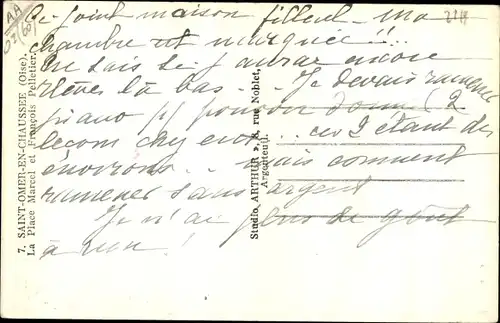 Ce joint - maison filleul - ma
chambre est marquée !!.
Ne sais si j'aurai encore
élèves là bas... Je devais ramener
piano pr pouvoir donner 2
leçons chez eux... ces 2 étant des
environs... mais comment
ramener sans argent
Je n'ai plus de goût
à rien !
7. SAINT-OMER-EN-CHAUSSEE (Oise).
La Place Marcel et François Pelletier.
Studio ARTHUR, 8, rue Noblet,
Argenteuil.
AA